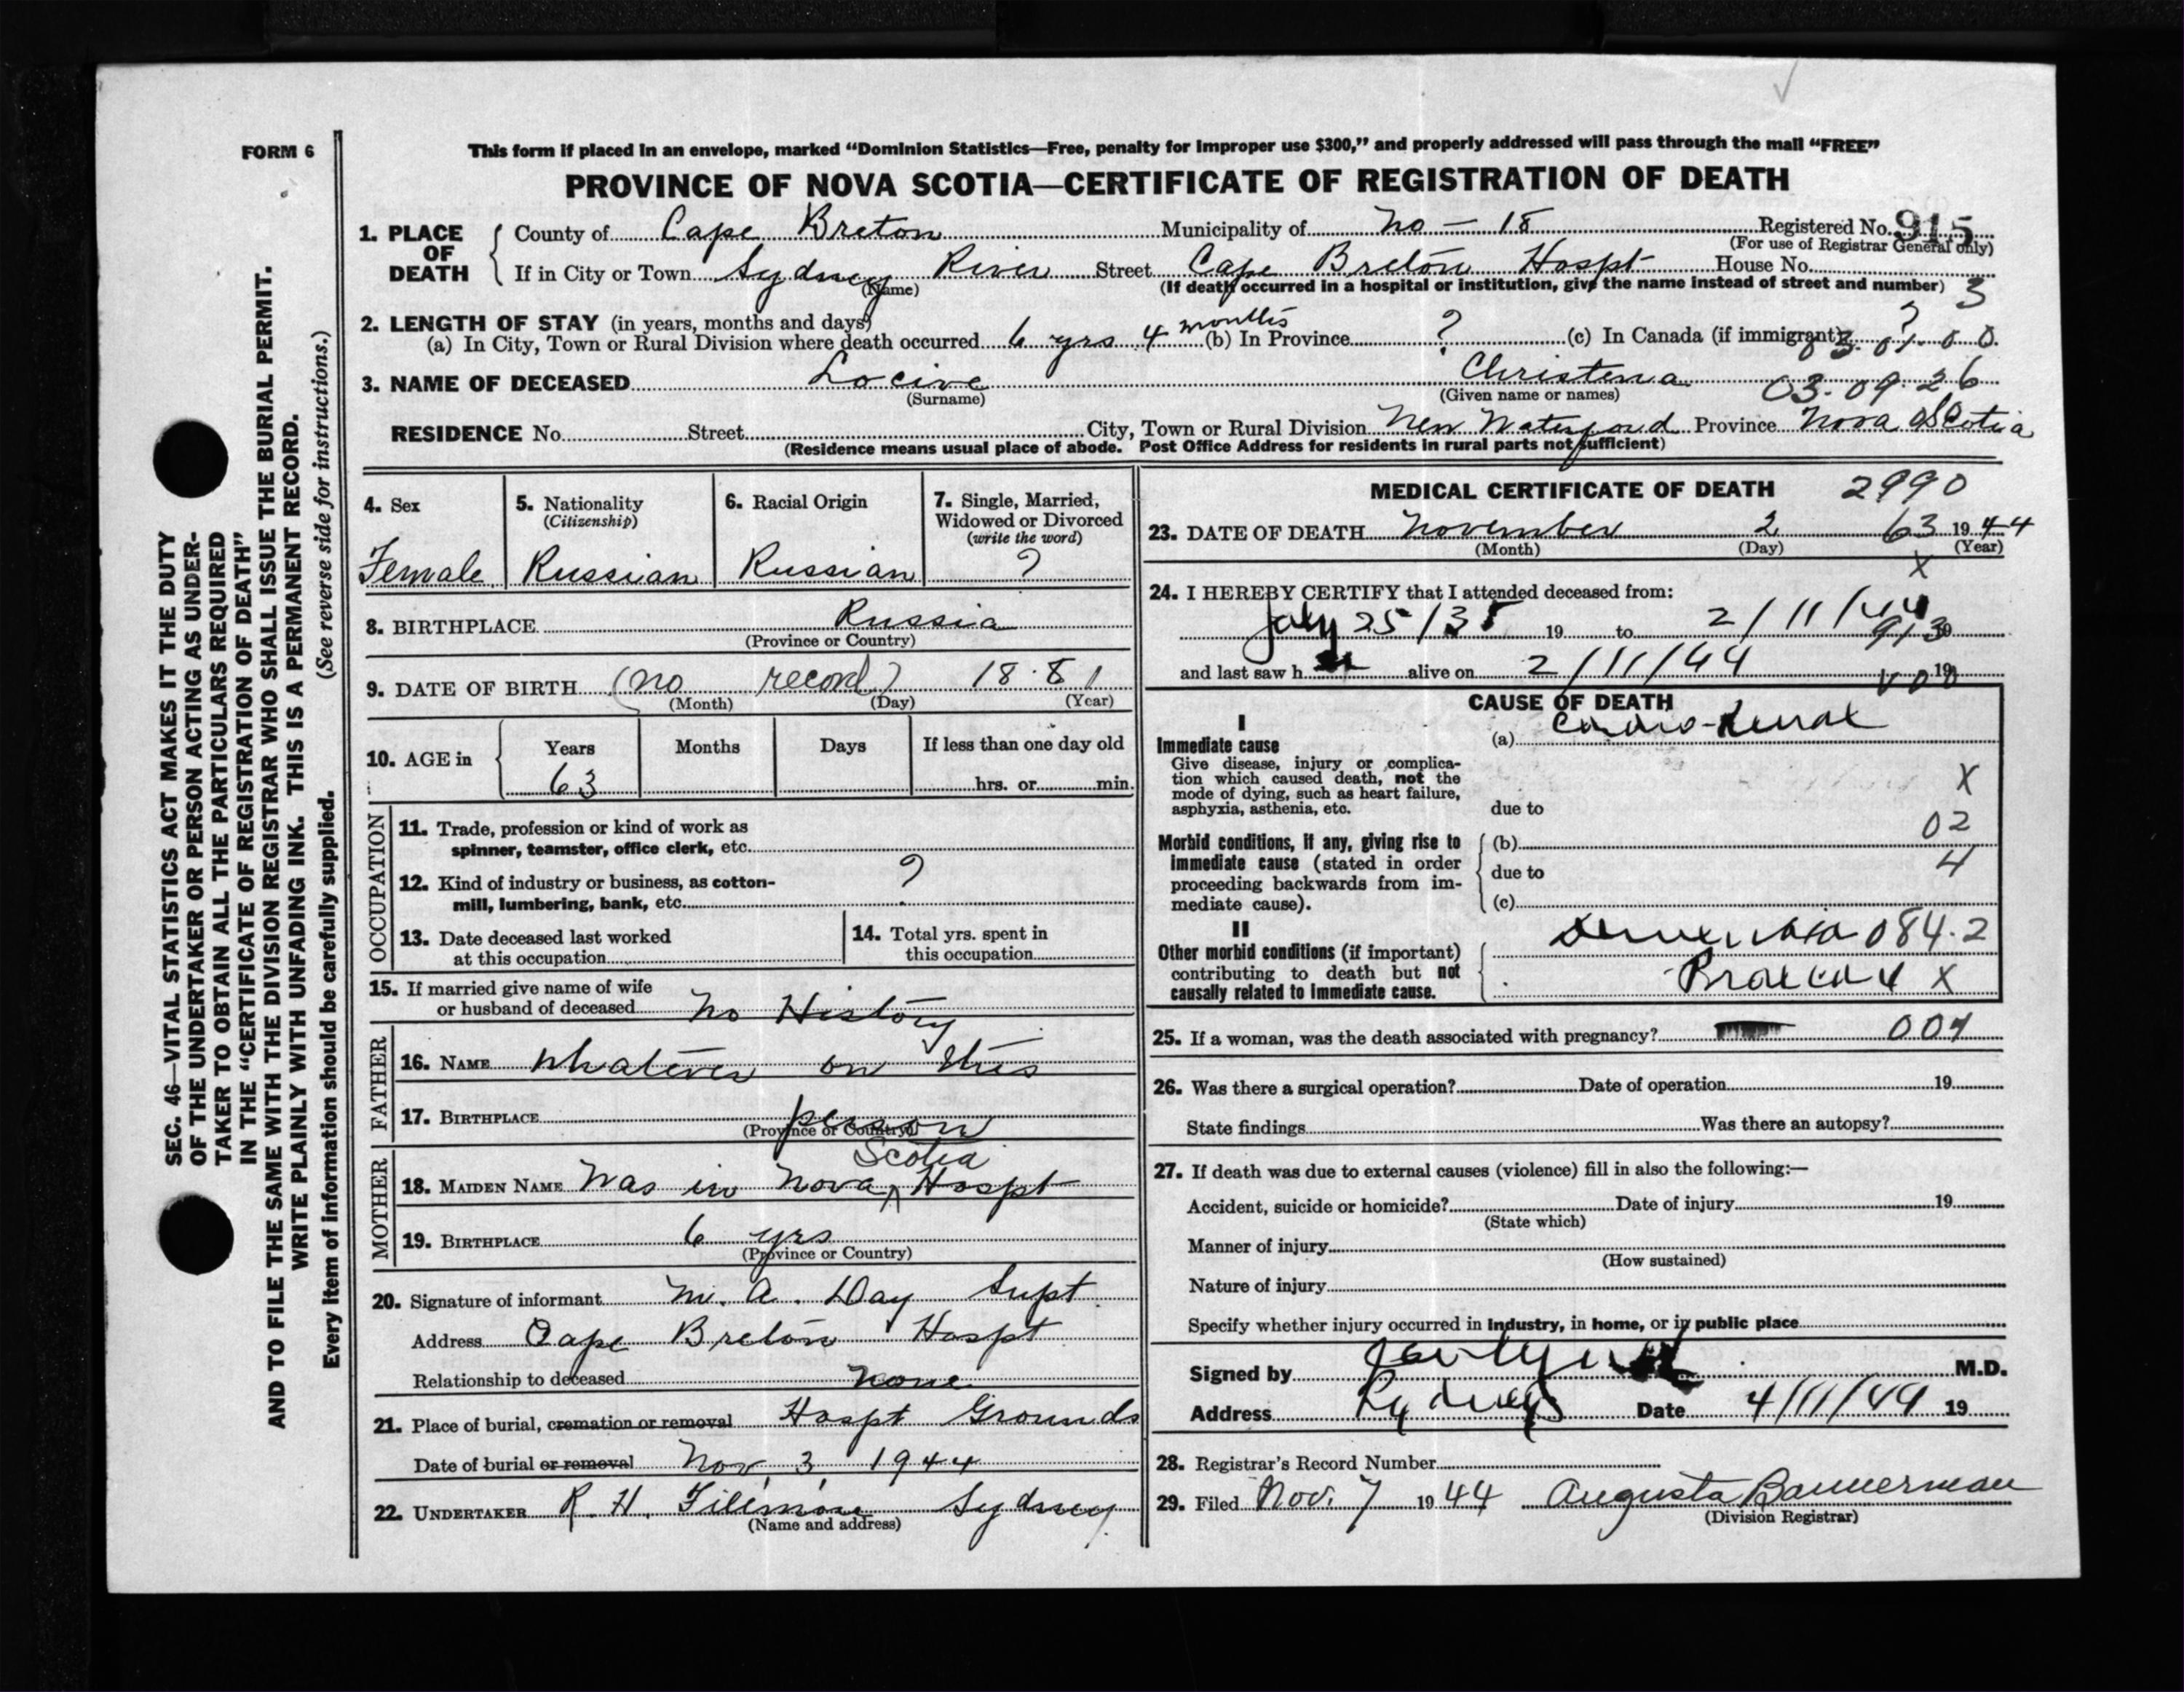 FORM 6
This form if placed in an envelope, marked “Dominion Statistics—Free, penalty for improper use $300,” and properly addressed will pass through the mail “FREE”
PROVINCE OF NOVA SCOTIA—CERTIFICATE OF REGISTRATION OF DEATH
1. PLACE OF DEATH
County of Cape Breton Municipality of No — 18 Registered No. 915
(For use of Registrar General only)
If in City or Town Sydney River Street Cape Breton Hospt House No.
(Name) (If death occurred in a hospital or institution, give the name instead of street and number) 3
2. LENGTH OF STAY (in years, months and days)
(a) In City, Town or Rural Division where death occurred 6 yrs 4 months (b) In Province ? (c) In Canada (if immigrant) ?
03.01.00
3. NAME OF DECEASED Locive Christena 03-09.26
(Surname) (Given name or names)
RESIDENCE No. Street City, Town or Rural Division New Waterford Province Nova Scotia
(Residence means usual place of abode. Post Office Address for residents in rural parts not sufficient)
4. Sex
Female
5. Nationality
(Citizenship)
Russian
6. Racial Origin
Russian
7. Single, Married,
Widowed or Divorced
(write the word)
?
8. BIRTHPLACE Russia
(Province or Country)
9. DATE OF BIRTH (no record) 18.81
(Month) (Day) (Year)
10. AGE in
Years Months Days If less than one day old
63 hrs. or min.
OCCUPATION
11. Trade, profession or kind of work as
spinner, teamster, office clerk, etc.
12. Kind of industry or business, as cotton-
mill, lumbering, bank, etc. ?
13. Date deceased last worked
at this occupation
14. Total yrs. spent in
this occupation
15. If married give name of wife
or husband of deceased No History
FATHER
16. NAME whatever on this
17. BIRTHPLACE person
(Province or Country)
MOTHER
Scotia
18. MAIDEN NAME Was in Nova Hospt
19. BIRTHPLACE 6 yrs
(Province or Country)
20. Signature of informant M. A. Day Supt.
Address Cape Breton Hospt
Relationship to deceased none
21. Place of burial, cremation or removal Hospt Grounds
Date of burial or removal Nov, 3, 1944
22. UNDERTAKER R. H. Sydney
(Name and address)
MEDICAL CERTIFICATE OF DEATH 2990
23. DATE OF DEATH November 2 63 1944
(Month) (Day) (Year)
x
24. I HEREBY CERTIFY that I attended deceased from:
July 25/35 19 to 2/11/44
and last saw h alive on 2/11/44 19
CAUSE OF DEATH
I
Immediate cause
Give disease, injury or complica-
tion which caused death, not the
mode of dying, such as heart failure,
asphyxia, asthenia, etc.
(a) Cardio-Renal
X
due to
02
Morbid conditions, if any, giving rise to
immediate cause (stated in order
proceeding backwards from im-
mediate cause).
(b)
4
due to
(c)
II
Other morbid conditions (if important)
contributing to death but not
causally related to immediate cause.
Dementia 084.2
Praecox X
25. If a woman, was the death associated with pregnancy? 004
26. Was there a surgical operation? Date of operation 19
State findings Was there an autopsy?
27. If death was due to external causes (violence) fill in also the following:—
Accident, suicide or homicide? Date of injury 19
(State which)
Manner of injury
(How sustained)
Nature of injury
Specify whether injury occurred in industry, in home, or in public place
Signed by M.D.
Address Sydney Date 4/11/44 19
28. Registrar's Record Number
29. Filed Nov. 7 1944 Augusta Bannerman
(Division Registrar)
SEC. 46—VITAL STATISTICS ACT MAKES IT THE DUTY
OF THE UNDERTAKER OR PERSON ACTING AS UNDER-
TAKER TO OBTAIN ALL THE PARTICULARS REQUIRED
IN THE “CERTIFICATE OF REGISTRATION OF DEATH”
AND TO FILE THE SAME WITH THE DIVISION REGISTRAR WHO SHALL ISSUE THE BURIAL PERMIT.
WRITE PLAINLY WITH UNFADING INK. THIS IS A PERMANENT RECORD.
Every item of information should be carefully supplied. (See reverse side for instructions.)